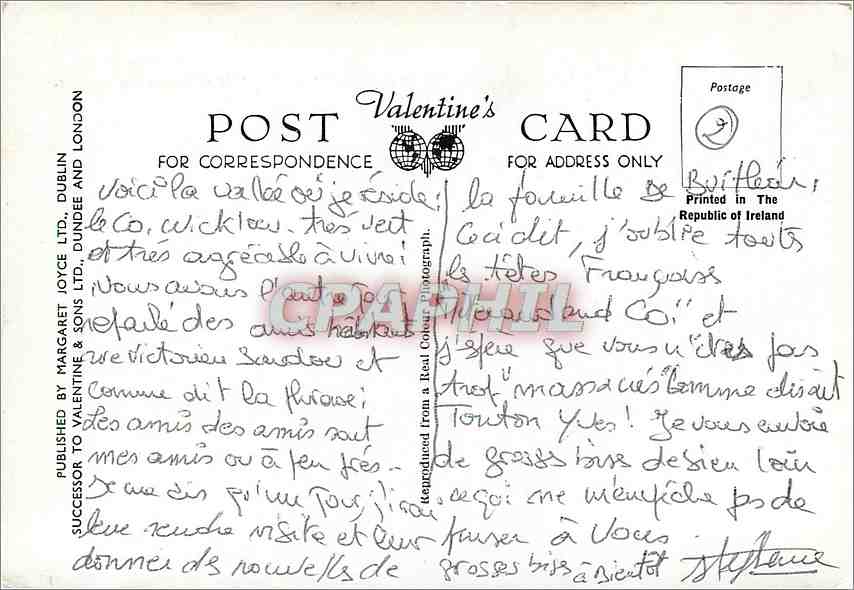 Valentine's
POST CARD
FOR CORRESPONDENCE
FOR ADDRESS ONLY
Postage
Printed in The
Republic of Ireland
PUBLISHED BY MARGARET JOYCE LTD., DUBLIN
SUCCESSOR TO VALENTINE & SONS LTD., DUNDEE AND LONDON
Reproduced from a Real Colour Photograph.
CPAPHIL
Voici la vallée où je réside,
le Co. Wicklow. très vert
et très agréable à vivre!
Nous avons l'autre jour
reparlé des amis habitant
rue Victorien Sardou et
comme dit la phrase:
Les amis des amis sont
mes amis ou à peu près.
Je me dis qu'un jour, j'irai
leur rendre visite et leur
donner des nouvelles de
la famille de
Ceci dit, j'oublie toutes
les têtes, Françoise
et
j'espère que vous n'êtes pas
trop "massacrés" comme disait
Tonton Yves! Je vous envoie
de grosses bises de si loin
ce qui ne m'empêche pas de
penser à vous
grosses bises à Bientôt Stéphanie